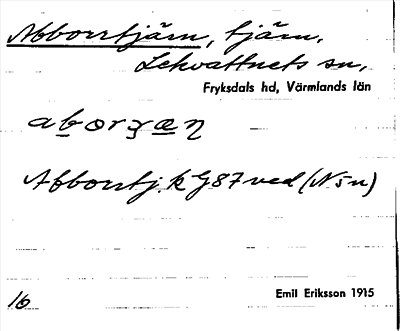 Abborrtjärn, tjärn,
Lekvattnets sn,
Fryksdals hd, Värmlands län
Abborrtj. k G87 ved (N5n)
Emil Eriksson 1915
16